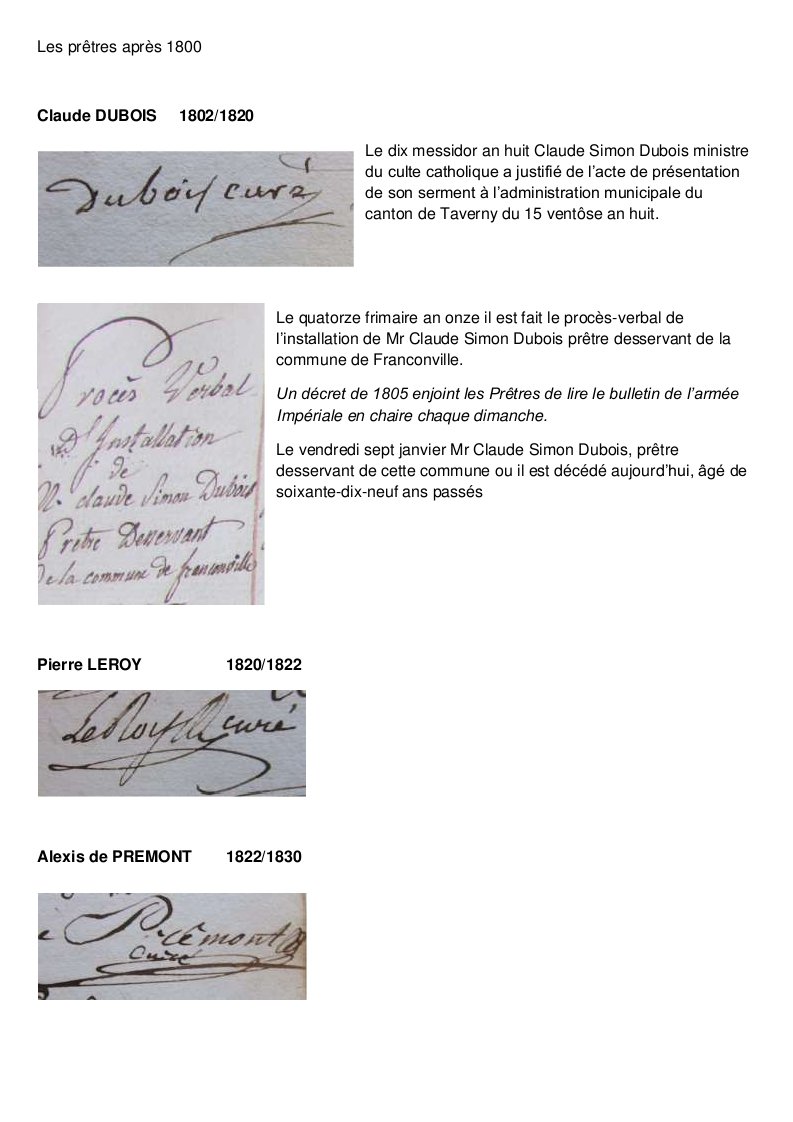 Les prêtres après 1800
Claude DUBOIS 1802/1820
Dubois curé
Le dix messidor an huit Claude Simon Dubois ministre
du culte catholique a justifié de l’acte de présentation
de son serment à l’administration municipale du
canton de Taverny du 15 ventôse an huit.
Procès Verbal
D'Installation
de
M. claude Simon Dubois
Prêtre Desservant
De la commune de franconville
Le quatorze frimaire an onze il est fait le procès-verbal de
l’installation de Mr Claude Simon Dubois prêtre desservant de la
commune de Franconville.
Un décret de 1805 enjoint les Prêtres de lire le bulletin de l’armée
Impériale en chaire chaque dimanche.
Le vendredi sept janvier Mr Claude Simon Dubois, prêtre
desservant de cette commune ou il est décédé aujourd’hui, âgé de
soixante-dix-neuf ans passés
Pierre LEROY 1820/1822
LeRoy curé
Alexis de PREMONT 1822/1830
Prémont
curé